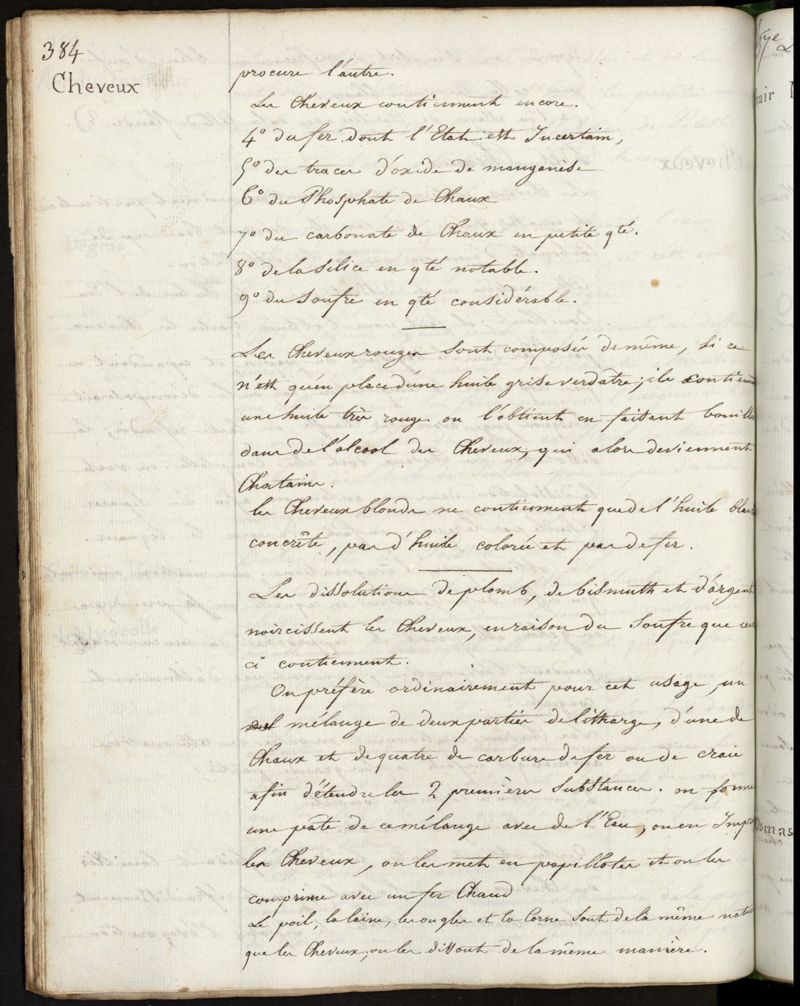 384
Cheveux
procure l'autre.
Les Cheveux contiennent encore.
4° du fer dont l'Etat est Incertain,
5° des traces d'oxide de manganèse
6° du Phosphate de Chaux
7° du carbonate de Chaux en petite qté.
8° de la Silice en qté notable.
9° du Soufre en qté considérable.
Les Cheveux rouges Sont composés de même, Si ce
n'est qu'en place d'une huile grise verdatre, ils contienn
une huile très rouge on l'obtient en faisant bouillir
dans de l'alcool des Cheveux, qui alors deviennent
Chatains.
les Cheveux blonds ne contiennent que de l'huile blan
concrête, pas d'huile colorée et pas de fer.
Les dissolutions de plomb, de bismuth et d'argent
noircissent les Cheveux, en raison du Soufre que ceux
ci contiennent.
On préfère ordinairement pour cet usage, un
mélange de deux parties de litharge, d'une de
Chaux et de quatre de carbure de fer ou de craie
afin d'étendre les 2 premières Substances. on forme
une pâte de ce mélange avec de l'Eau, on en Impr
les Cheveux, on les met en papillotes et on les
comprime avec un fer Chaud
Le poil, la laine, les ongles et la Corne Sont de la même nat
que les Cheveux, on les dissout de la même manière.